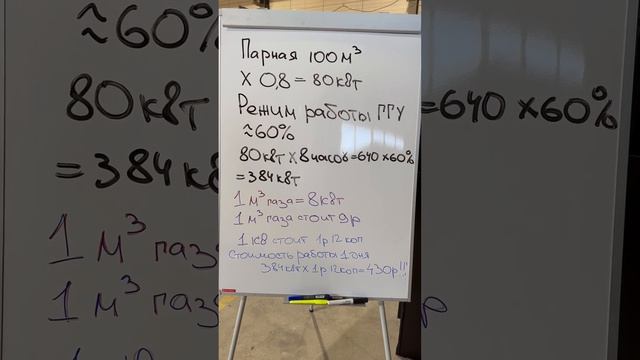 Парная 100м³
X 0,8 = 80кВт
Режим работы ГГУ
≈60%
80кВт X 8 часов=640 x60%
= 384 кВт
1 м³ газа = 8кВт
1 м³ газа стоит 9р
1 кВ стоит 1р 12 коп
Стоимость работы 1 дня
384кВт x 1р 12коп=430р!!!
≈60%
80кВт
=640 x60%
=384 к
1 м³ газ
1 м³ газ
р